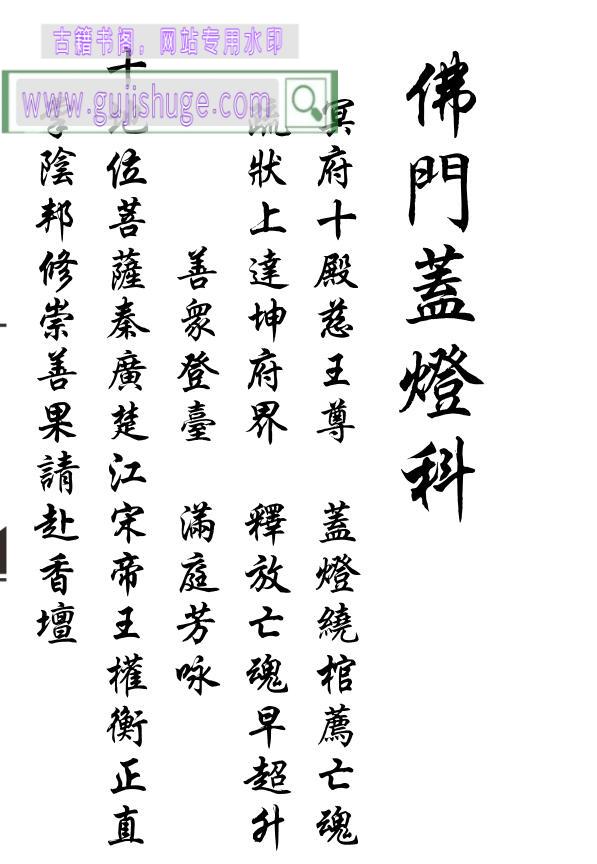 古籍书阁，网站专用水印
www.gujishuge.com
佛門蓋燈科
冥府十殿慈王尊　蓋燈繞棺薦亡魂
疏狀上達坤府界　釋放亡魂早超升
善眾登臺　滿庭芳咏
十地位菩薩秦廣楚江宋帝王權衡正直
陰邦修崇善果請赴香壇